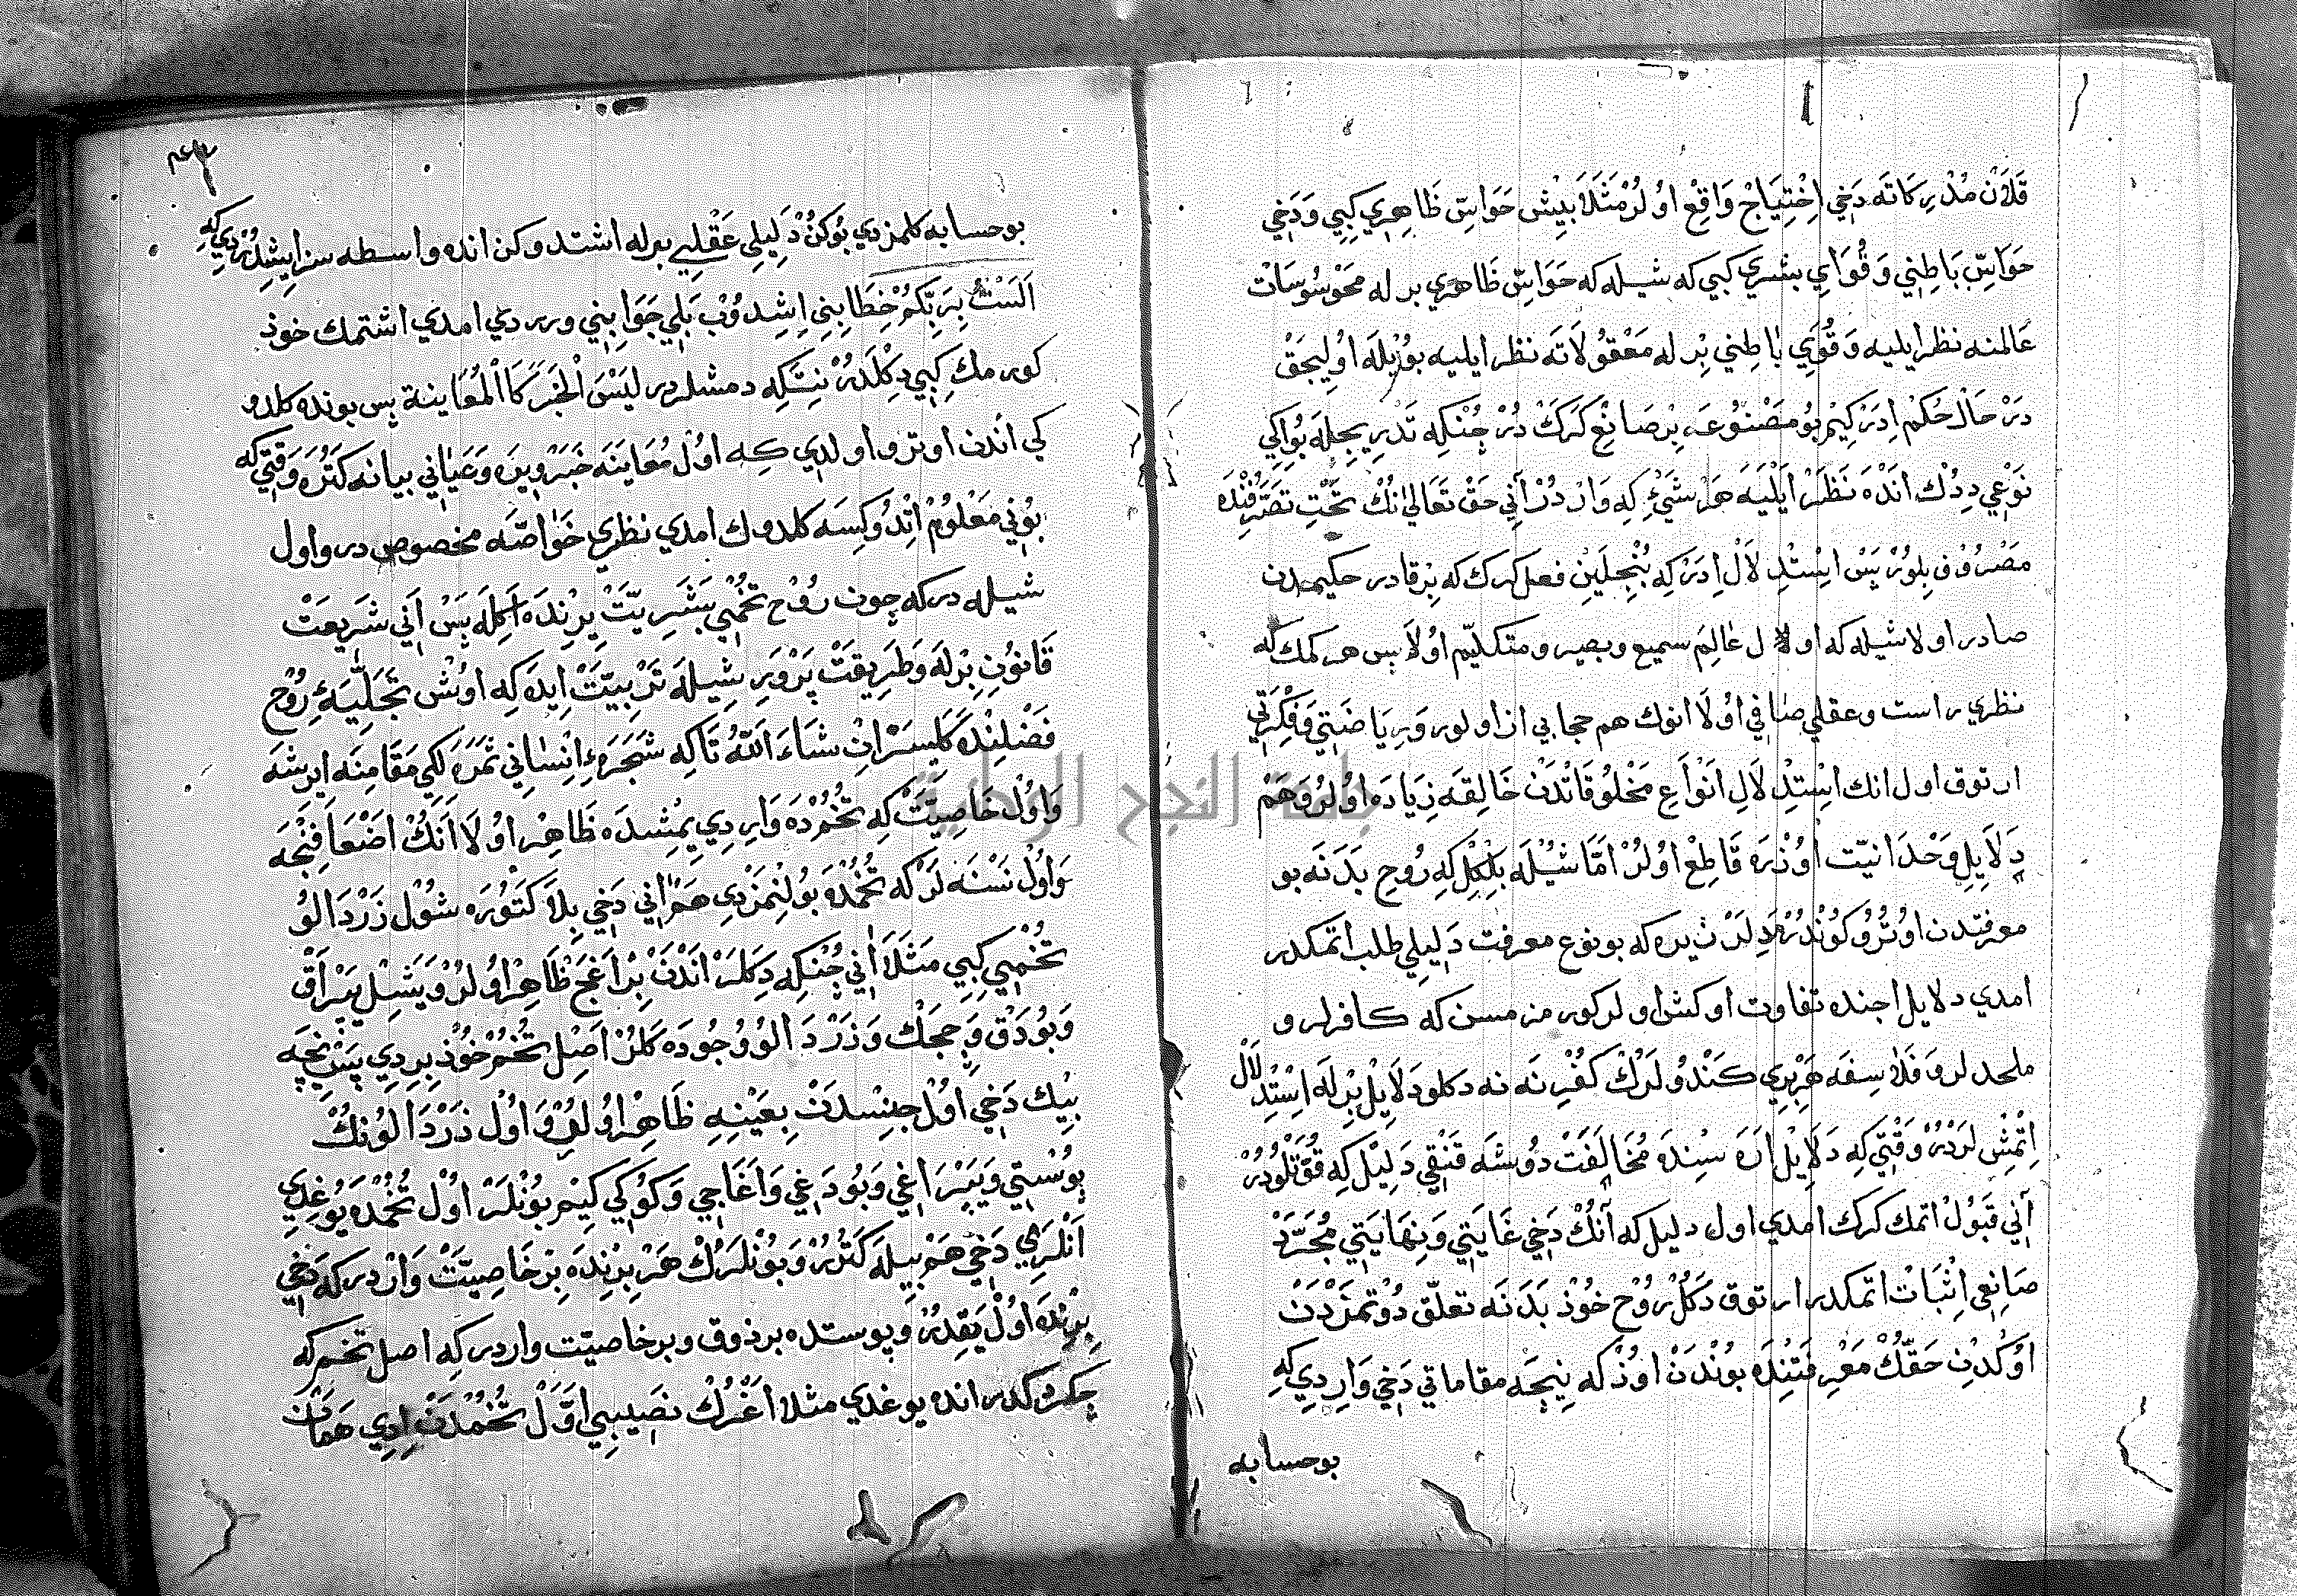 قَلَانْ مُدْرِكَاتَه دَخِي اِخْتِيَاجْ وَاقِعْ اوُلُرْ مَثَلَا بِيشْ حَوَاسِّ ظَاهِرِي كِبِي وَدَخِي
حَوَاسِّ بَاطِنِي وَقُوَايِ بشري كبي كه شيله كه حَوَاسِّ ظَاهِرِي برله مَحْسُوسَاتْ
عَالمنه نظر ايليه وَقُوَايِ بَاطِني بِرْله مَعْقُولَاتَه نظر ايليه بُونُيلَه اوُلِيجَقْ
دَرْ حَالْ حُكمْ اِدَرْ كِيمْ بُو مَصْنُوعَه بِرْ صَانِعْ كَرَكْ دُرْ چُنْكِه تَدْرِيجِلَه بُو اِكِي
نَوْعِي دِدُك اَنْدَه نَظَرْ اَيْلَيَه هَرْ شَيْءِ كِه وَارْ دُرْ آنِي حَقْ تَعَالىٰ نُكْ تَحْتِ تَصَرُّفِنْدَه
مَصْرُوف بِلُورْ پَسْ اِسْتِدْلَالْ اِدَرْ كِه بُنْجِلَيِنْ فعل كرك كه بِرْ قادر حكيمدن
صادر اولا شيله كه اولا ل عَالِم سميع وبصير ومتكلّيم اوُلَا پس هر كمك كه
نظري راست وعقلي صافي اوُلَا انوك هم حجابي از اولور وَرِيَاضَتِي وَفِكْرَتي
ارتوق اول انك اِسْتِدْلَالِ اَنْوَاعِ مَخْلُوقَاتْدَنْ خَالِقَه زِيَادَه اوُلُر وَهَمْ
دَلَايِلِ وَحْدَانيّت اوُزْرَه قَاطِعْ اوُلُرْ امَّا شُيْلَه بِلْكِلْ كِه رُوحِ بَدَنَه بو
معرفتدن اوُتُرُو كوُنْدُرْدِلَرْ يره كه بو نوع معرفت دَلِيلِي طلب اتمكدر
امدي دلايل اجنده تفاوت اوكش اولر كورمزمسن كه كافرلر و
ملحدلر وَفَلَاسِفَه هَرْبِرِي كَنْدُولَرُكْ كُفْرِنَه نه دكلو دَلَايِلْ بِرْلَه اسْتِدْلَالْ
اِتْمِشْلَرْدُرْ وَقْتِي كِه دَلَايِلْ اَرَه سِنْدَه مُخَالَفَتْ دُوشَه قَنْقِي دَلِيلْ كِه قُوَّتْلُودُرْ
آنِي قَبُولْ اتمك كرك امدي اول دليل كه آنُكْ دَخِي غَايَتِي وَنِهَايَتِي مُجَرَّدْ
صَانِعِي اِثْبَاتْ اتمكدر ارتوق دَكُلْ رُوُحْ خُوذْ بَدَنَه تعلّق دُوتمَزْدَنْ
اوُكْدِنْ حَقُّكْ مَعْرِفَتِنْدَه بوُنْدَنْ اوُذْ كه نِيجَه مقاماتي دَخِي وَارِدِي كِه
بوحسابه
بوحسابه كلمزدي بُوكُنْ دَلِيلِي عَقْلِيِ برله اشتدوكن انده واسطه سز اِيشِدُرْدِي كِه
اَلَسْتُ بِرَبِّكُمْ خِطَابِنِي اِشِدُوبْ بَلِي جَوَابِني وررديْ امدي اشتمك خوذ
كورمك كِبِي دِكْلْدُرْ نِتَكِه دمشلردر لَيْسَ الْخَبَرُ كَا الْمُعَاينة پس بونده كلدو
كي اَندن اوترو اولدي كِه اوُلْ مُعَاينَه خَبَرْ وِيرَه وَعَيَاني بيانه كَتُرَه وَقْتِي كه
بوُنِي مَعْلُومْ اِتْدُو كِسَه كلدوك امدي نظري خَوَاصَّه مخصوص در واول
شيله در كه چون رُوُحْ تخُمِْي بَشَرِيَّتْ يِرِنْدَه اَكِلَه پَسْ اَنِي شَرِيعَتْ
قَانوُنِ بِرْلَه وَطَرِيقَتْ پَرْوَرِشِيلَه تَرْبِيَتْ اِيدَه كِه اوُشْ تَجَلِّيَهءِ رُوُحْ
فَصْلِنْدَه كَلِيسَرْ اِنْ شاءَ اللّٰهُ تَا كِه شَجَرَهءِ اِنْسَاني ثَمَرَه لِكِي مَقَامِنَه ايرشَه
وَاوُلْ خَاصِيَّتْ كِه تُخُمْدَه وَارِدِي يِمِشِدَه ظَاهِرْ اوُلَا اَنكْ اَضْعَافِنْجَه
وَاوُلْ نَسْنَه لَرْ كه تُخُمْدَه بُولِنْمَزْدِي هَمْ اَنِي دَخِي بِلَا كَتُورَه شوُلْ زَرْدَالُو
تُخُمِْي كِبِي مَثَلاَ اَنِي چُنْكِه دِكَلَرْ اَنْدَنْ بِرْ اَغَجْ ظَاهِرْ اوُلُرْ وَيَشِلْ يَپْرَاقْ
وَبوُدَقْ وَچِچَكْ وَزَرْدَالُو وُجُودَه كَلُرْ اَصِلْ تُخُمْ خوُذْ بِرِدِي پَسْ نِيجَه
بِيْك دَخِي اوُلْ جِنْسدَنْ بِعَيْنِهِ ظَاهِرْ اوُلُرْ وَاوُلْ زَرْدَالوُنُكْ
پوُسْتِي وَيَپْرَاغِي وَبُودَغِي وَاَغَاجِي وَكوُكِي كِيمْ بوُنْلَرْ اوُلْ تُخُمْدَه يوُغِدِي
اَنْلَرِي دَخِي هَمْ بِيلَه كَتُرُرْ وَبُونْلَرُكْ هَرْ بِرِنْدَه بِرْ خَاصِيَّتْ وَارْدر كه دَخِي
بِرِنْدَه اوُلْ يَقدُرْ وپوستده بر ذوق وبر خاصيّت واردر كِه اصل تخم كه
چكردكدر انده يوغدي مثلا اَغْزُكْ نَصِيبِي اَوَّلْ تُخُمْدَنْ اِدِي هَمَانْ